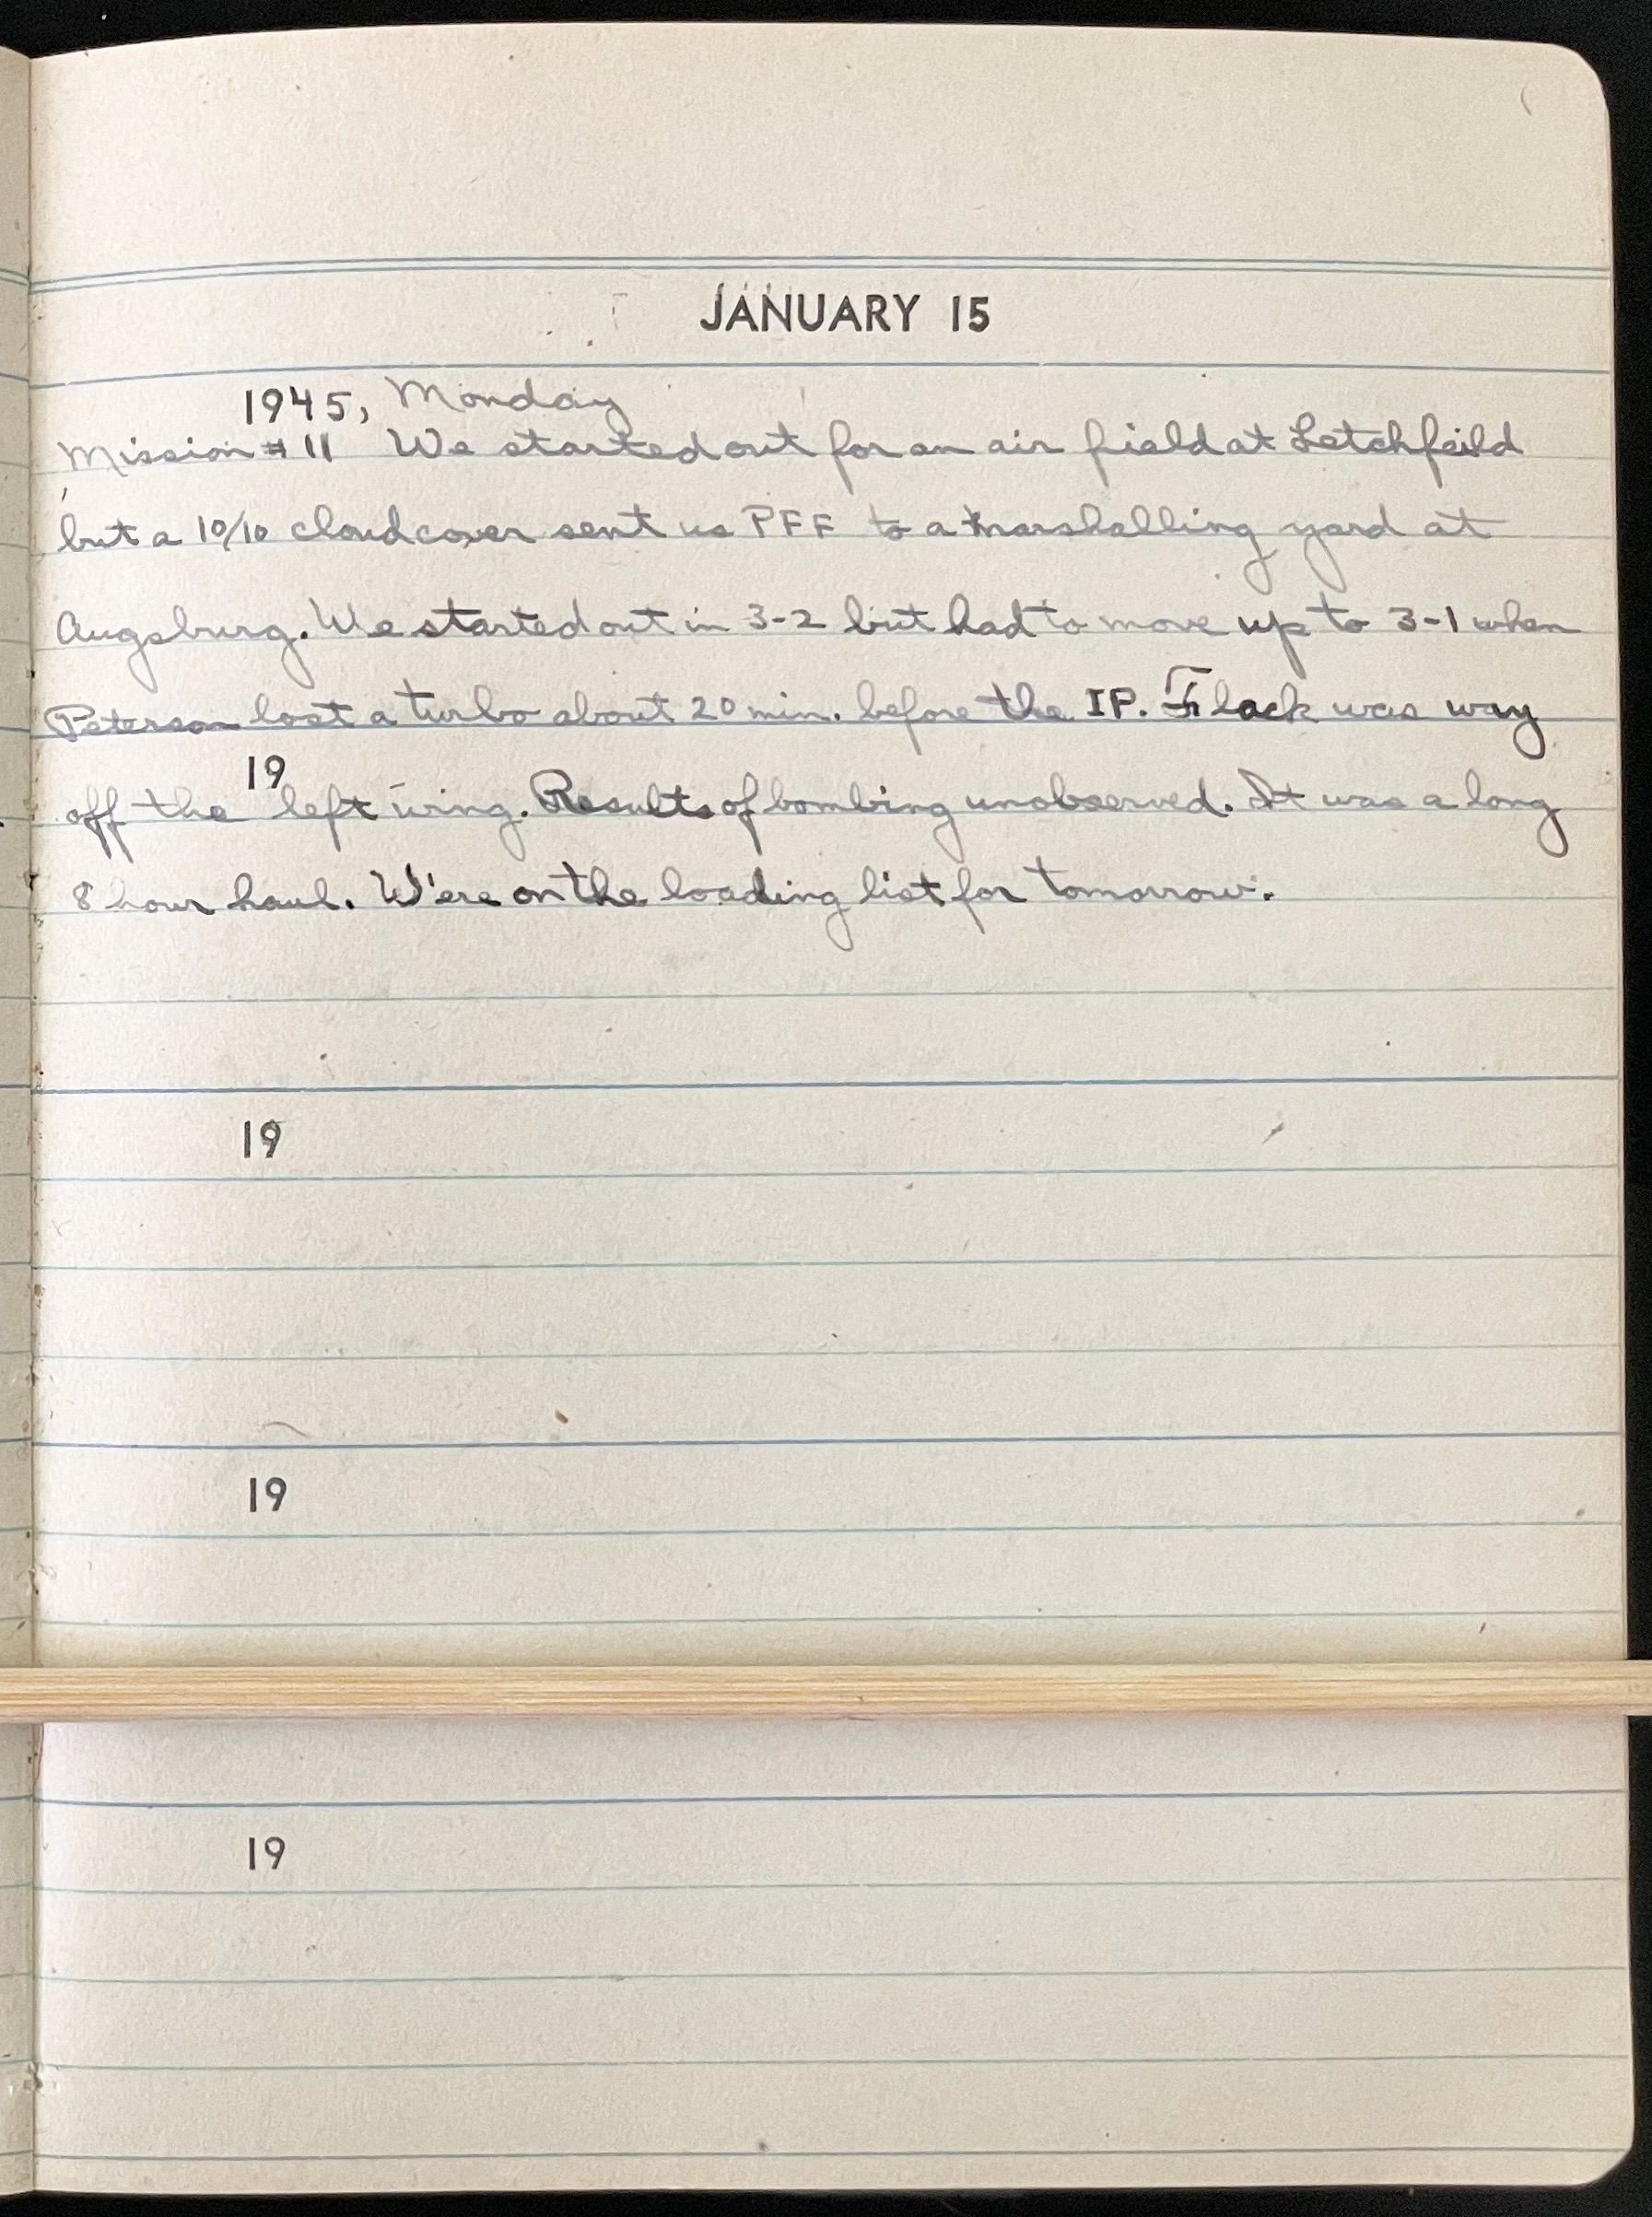 JANUARY 15
1945, Monday
Mission #11 We started out for an air field at Letchfeild
but a 10/10 cloud cover sent us PFF to a marshalling yard at
Augsburg. We started out in 3-2 but had to move up to 3-1 when
Peterson lost a turbo about 20 min. before the IP. Flack was way
19
off the left wing. Results of bombing unobserved. It was a long
8 hour haul. We're on the loading list for tomorrow.
19
19
19